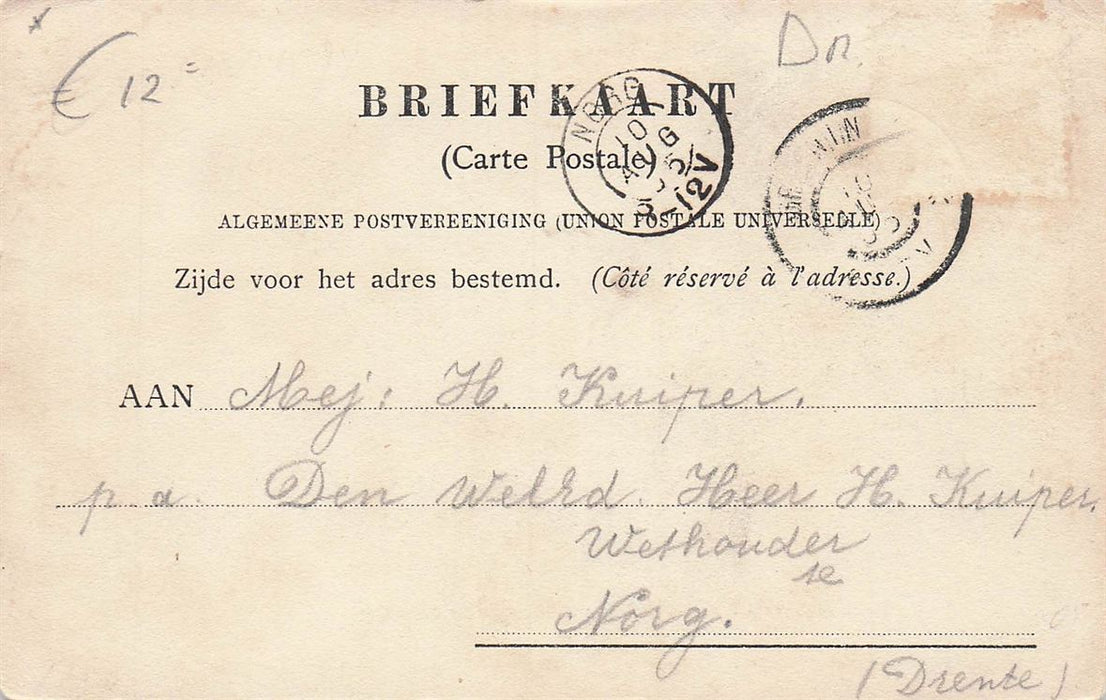 € 12 =
Dn.
BRIEFKAART
(Carte Postale)
NORG
10
AUG
05
8-12V
ALGEMEENE POSTVEREENIGING (UNION POSTALE UNIVERSELLE)
Zijde voor het adres bestemd. (Côté réservé à l'adresse.)
AAN Mej: H. Kuiper.
p.a. Den WelEd. Heer H. Kuiper.
Wethouder
te
Norg.
(Drente)